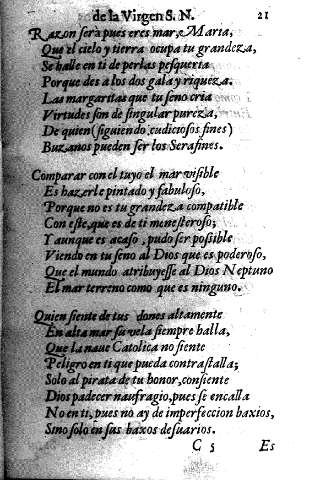 de la Virgen S. N. 21
Razon serà pues eres mar, ò Marta,
Que el cielo y tierra ocupa tu grandeza,
Se halle en ti de perlas pesqueria
Porque des a los dos gala y riqueza.
Las margaritas que tu seno cria
Virtudes son de singular pureza,
De quien (siguiendo cudiciosos fines)
Buzanos pueden ser los Serafines.
Comparar con el tuyo el mar visible
Es hazerle pintado y fabuloso,
Porque no es tu grandeza compatible
Con este, que es de ti menesteroso;
Y aunque es acaso, pudo ser possible
Viendo en tu seno al Dios que es poderoso,
Que el mundo atribuyesse al Dios Neptuno
El mar terreno como que es ninguno.
Quien siente de tus dones altamente
En alta mar su vela siempre halla,
Que la naue Catolica no siente
Peligro en ti que pueda contrastalla;
Solo al pirata de tu honor, consiente
Dios padecer naufragio, pues se encalla
No en ti, pues no ay de imperfeccion baxios,
Sino solo en sus baxos desuarios.
C 5 Es